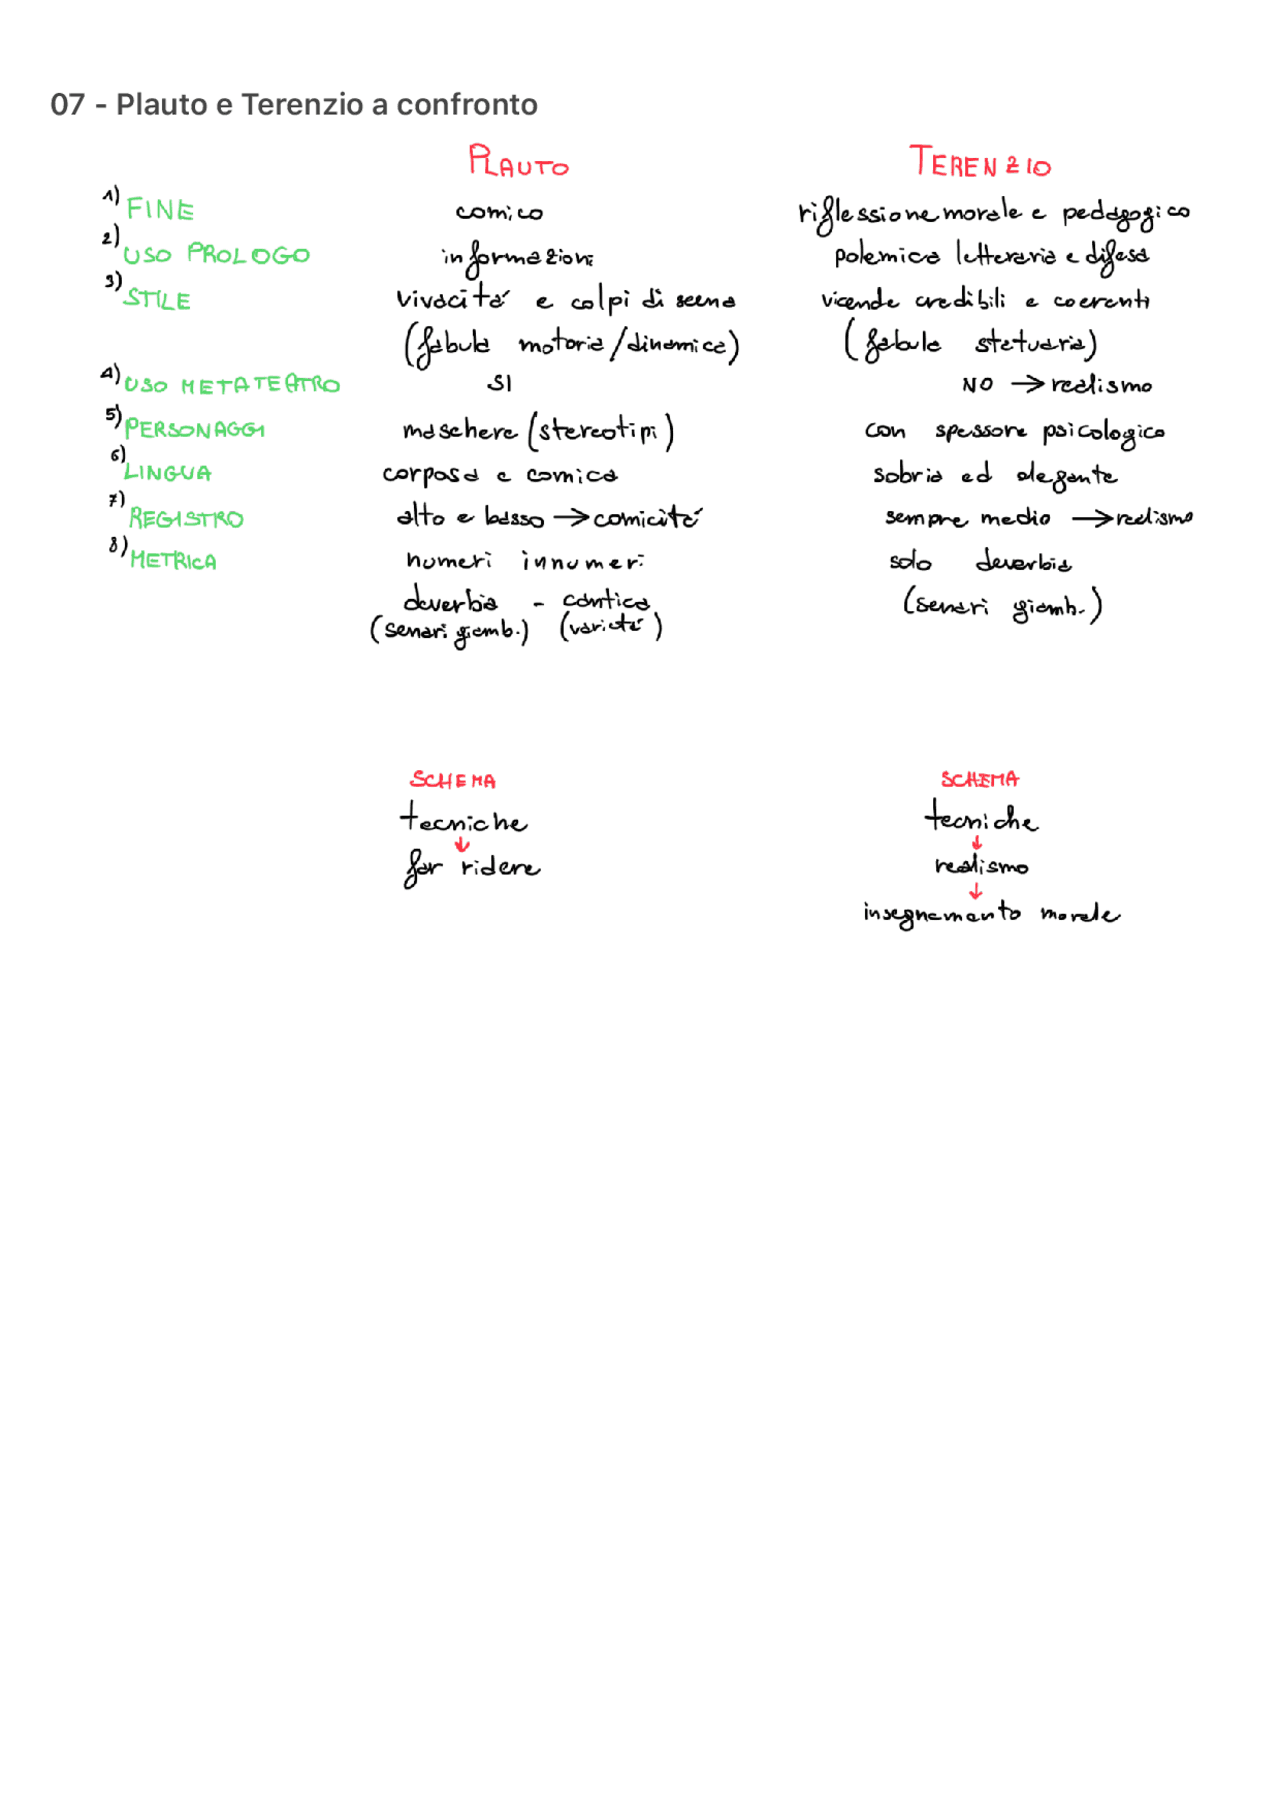 07 - Plauto e Terenzio a confronto
PLAUTO TERENZIO
1) FINE comico riflessione morale e pedagogico
2) USO PROLOGO informazioni polemica letteraria e difesa
3) STILE vivacitá e colpi di scena vicende credibili e coerenti
(fabula motoria/dinamica) (fabula statuaria)
4) USO METATEATRO SI NO → realismo
5) PERSONAGGI maschere (stereotipi) con spessore psicologico
6) LINGUA corposa e comica sobria ed elegante
7) REGISTRO alto e basso → comicitá sempre medio → realismo
8) METRICA numeri innumeri solo deverbia
deverbia - cantica (senari giamb.)
(senari giamb.) (varietá)
SCHEMA SCHEMA
tecniche tecniche
↓ ↓
far ridere realismo
↓
insegnamento morale